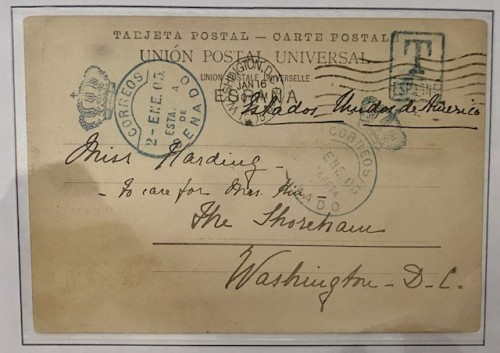 TARJETA POSTAL — CARTE POSTALE
UNIÓN POSTAL UNIVERSAL
UNION POSTALE UNIVERSELLE
ESPAÑA
T
ESPAGNE
WASHINGTON, D.C.
JAN 16
Estados Unidos de America
CORREOS
2 - ENE. 05
ESTAFETA
DE
SENADO
CORREOS
ENE. 05
SENADO
Miss Harding -
To care for Mrs.
The Shoreham
Washington - D.C.